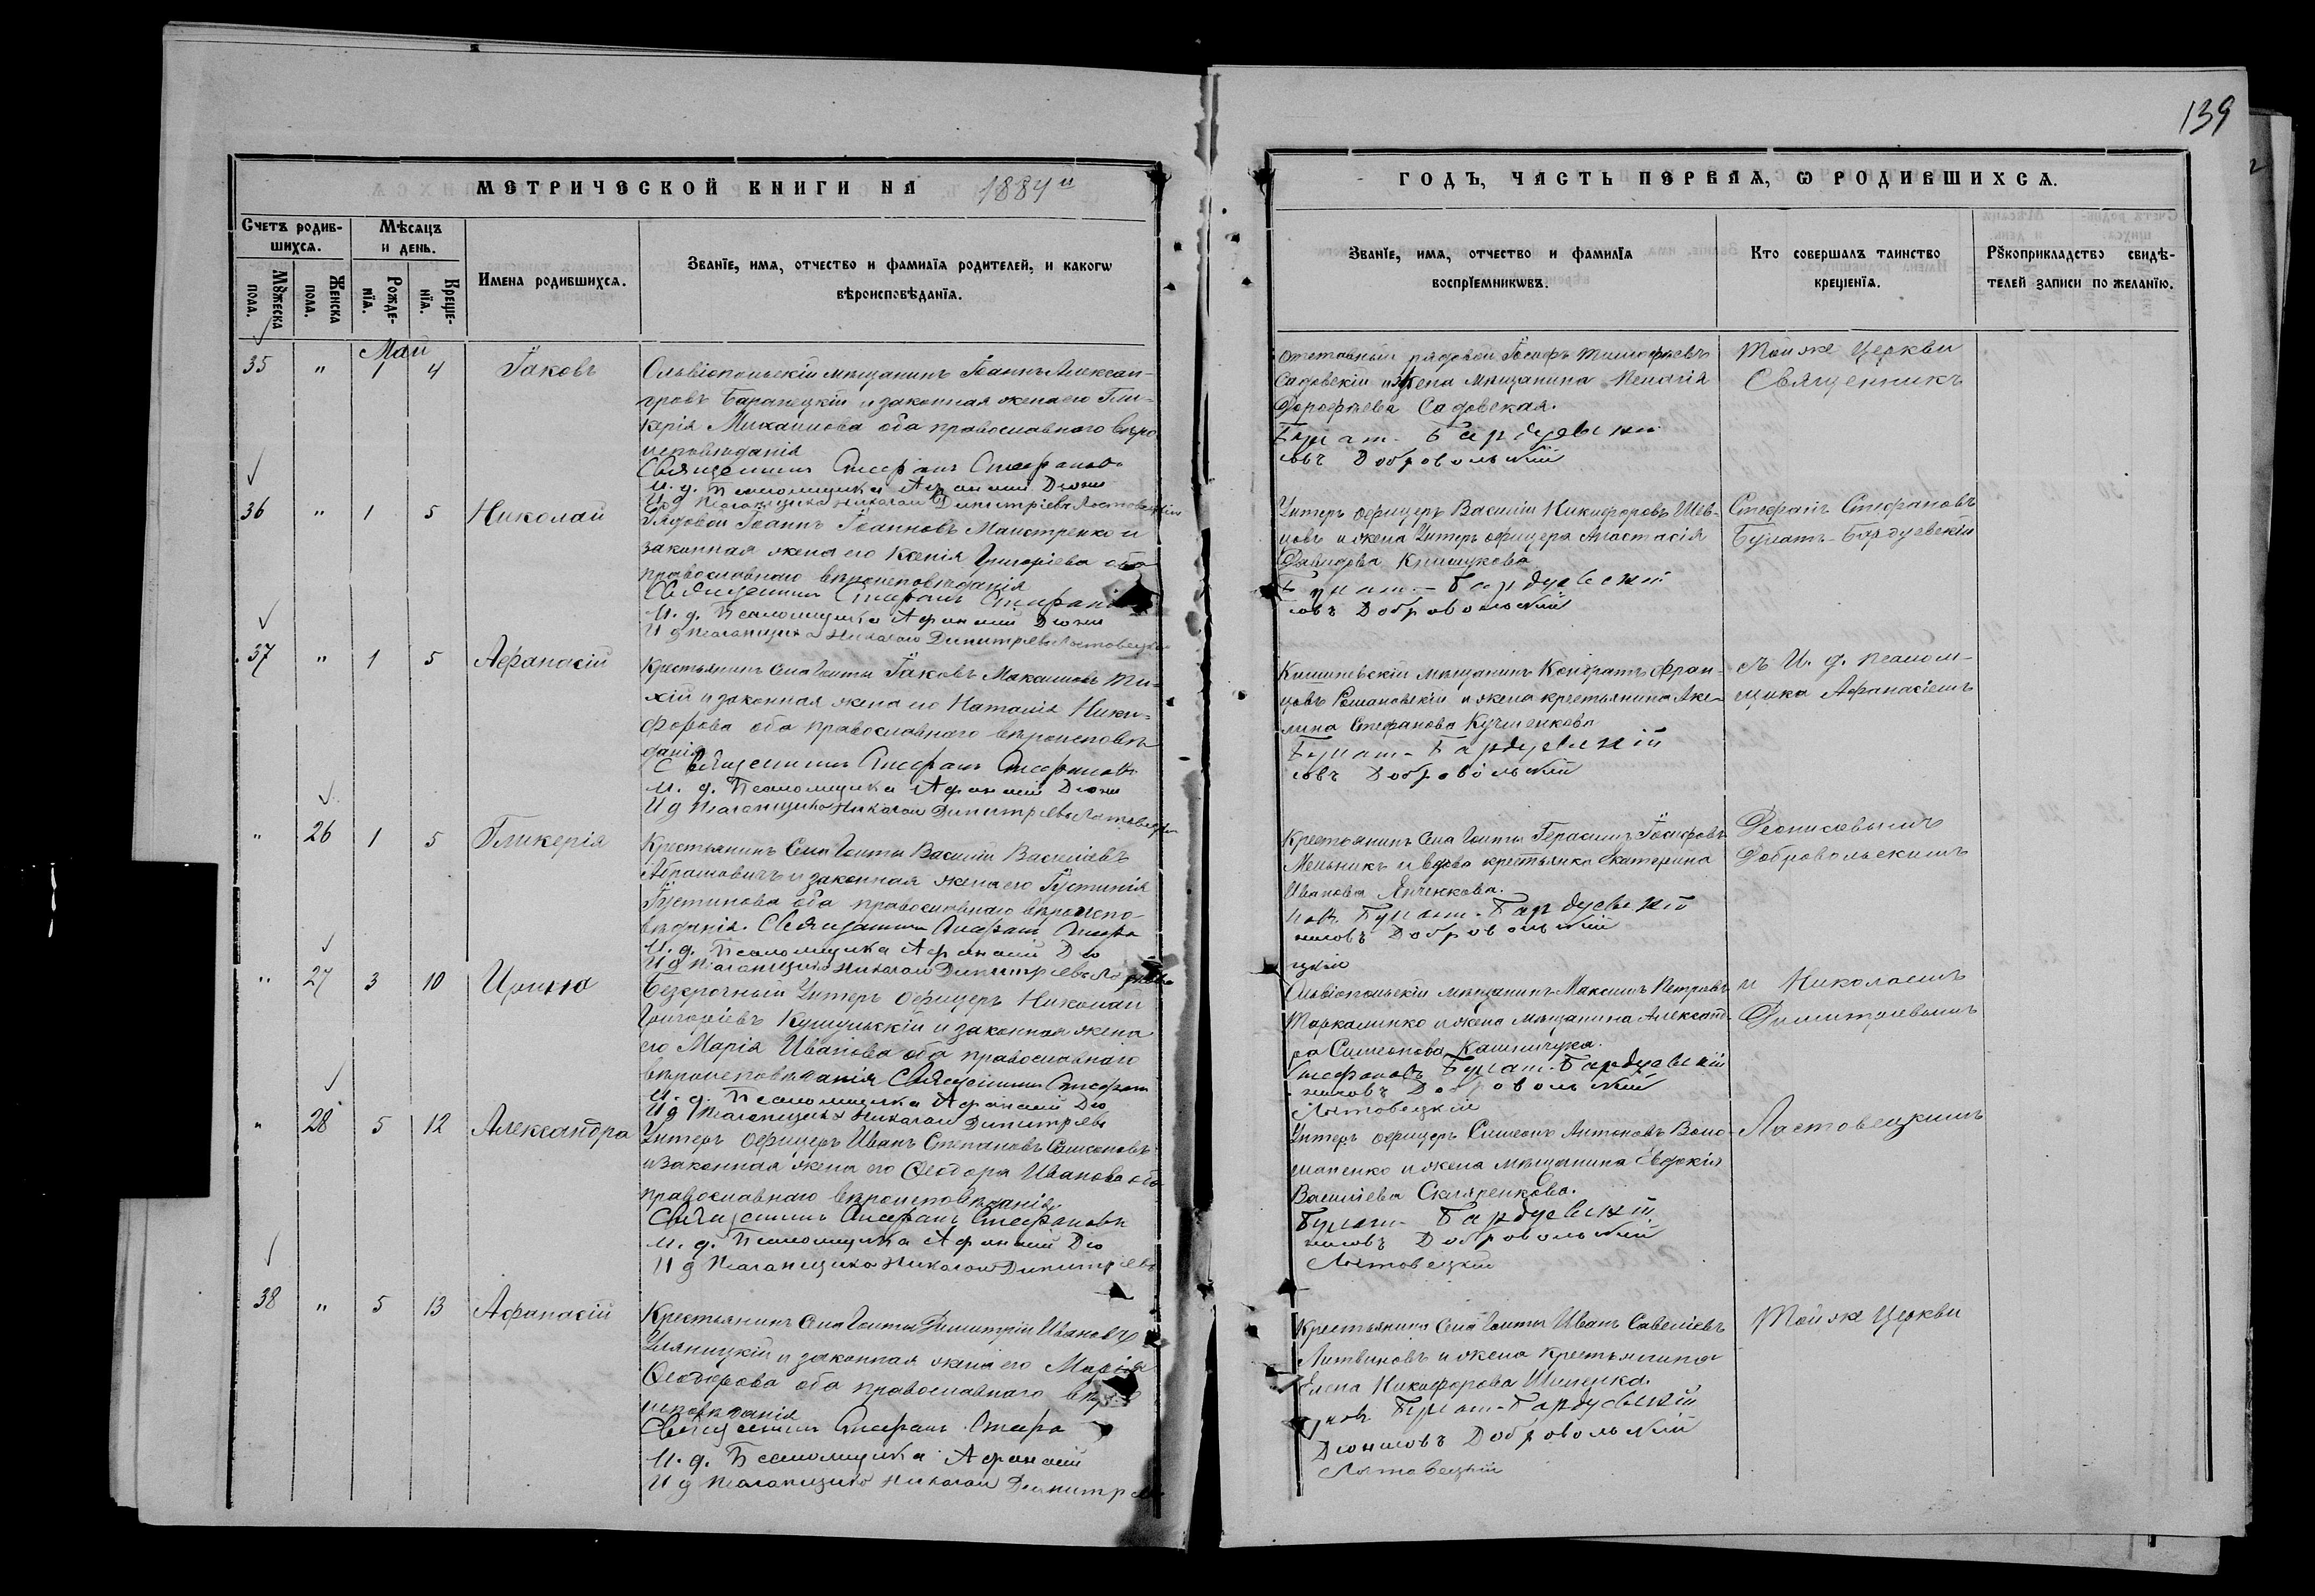 139
МЕТРИЧЕСКОЙ КНИГИ НА 1884й
ГОДЪ, ЧАСТЬ ПЕРВАЯ, Ѡ РОДИВШИХСѦ.
Счетъ родив-
шихсѧ.
Мѣсѧцъ
и день.
Мꙋжеска
пола.
Женска
пола.
Рожде-
нїѧ.
Креще-
нїѧ.
Имена родившихсѧ.
Званїе, имѧ, отчество и фамилїѧ родителей, и какогѡ
вѣроисповѣданїѧ.
Званїе, имѧ, отчество и фамилїѧ
воспрїемникѡвъ.
Кто совершалъ таинство
крещенїѧ.
Рꙋкоприкладство свидѣ-
телей записи по желанїю.
Май
35 " 1 4 Іаковъ
Ольвіопольскій мѣщанинъ Іоаннъ Алексан-
дровъ Баранецкій и законная жена его Гли-
керія Михаилова оба православнаго вѣро
исповѣданія
Священникъ Стефанъ Стефанов
И. д. Псаломщика Афанасій Діони
И д Псаломщика Николай Димитріевъ Лястовецкій
Отставный рядовой Іосифъ Тимофѣевъ
Садовскій и жена мѣщанина Пелагія
Дорофѣева Садовская.
Булат-Бардуевскій
совъ Добровольскій
Той же Церкви
Священникъ
36 " 1 5 Николай
Рядовой Іоаннъ Іоанновъ Маистренко и
законная жена его Ксенія Григоріева оба
православнаго вѣроисповѣданія
Священникъ Стефанъ Стефано
И. д. Псаломщика Афанасій Діони
И д Псаломщика Николай Димитріевъ Лястовецкій
Унтеръ офицеръ Василій Никифоровъ Шев-
цовъ и жена Унтеръ офицера Анастасія
Давидова Климукова
Булат-Бардуевскій
совъ Добровольскій
Стефанъ Стефановъ
Булатъ-Бардуевскій
37 " 1 5 Афанасій
Крестьянинъ Села Голты Іаковъ Максимовъ Ти-
хій и законная жена его Наталія Ники-
форова оба православнаго вѣроисповѣ
данія
Священникъ Стефанъ Стефанов
И. д. Псаломщика Афанасій Діони
И д Псаломщика Николай Димитріевъ
Кишиневскій мѣщанинъ Кондратъ Фран-
цовъ Романовскій и жена крестьянина Аке-
лина Стефанова Кучменкова
Булат-Бардуевскій
совъ Добровольскій
съ И. д. псалом-
щика Афанасіемъ
" 26 1 5 Гликерія
Крестьянинъ Села Голты Василій Василіевъ
Абрамовичъ и законная жена его Іустинія
Іустинова оба православнаго вѣроиспо-
вѣданія. Священникъ Стефанъ Стефа
И. д. Псаломщика Афанасій Діо
И д Псаломщика Николай Димитріевъ
Крестьянинъ Села Голты Герасимъ Іосифовъ
Мельникъ и вдова крестьянка Екатерина
Иванова Янченкова.
новъ Булат-Бардуевскій
нисовъ Добровольскій
цкій
Діонисовымъ
Добровольскимъ
" 27 3 10 Ирина
Безсрочный Унтеръ Офицеръ Николай
Григоріевъ Кушульскій и законная жена
его Марія Иванова оба православнаго
вѣроисповѣданія Священникъ Стефанъ
И. д. Псаломщика Афанасій Діо
И д Псаломщика Николай Димитріевъ
Ольвіопольскій мѣщанинъ Максимъ Петровъ
Таркаленко и жена мѣщанина Александ-
ра Симеонова
Стефановъ Булат-Бардуевскій
нисовъ Добровольскій
Лястовецкій
и Николаемъ
Димитріевымъ
" 28 5 12 Александра
Унтеръ Офицеръ Иванъ Степановъ Самсоновъ
и законная жена его Ѳеодора Иванова оба
православнаго вѣроисповѣданія.
Священникъ Стефанъ Стефановъ
И. д. Псаломщика Афанасій Діо
И д Псаломщика Николай Димитріевъ
Унтеръ офицеръ Симеонъ Антоновъ Воло-
шаненко и жена мѣщанина Евдокія
Василіева Скляренкова.
Булат-Бардуевскій
нисовъ Добровольскій
Лястовецкій
Лястовецкимъ
38 " 5 13 Афанасій
Крестьянинъ Села Голты Димитрій Ивановъ
Уляницкій и законная жена его Марія
Ѳеодорова оба православнаго вѣро
исповѣданія
Священникъ Стефанъ Стефа
И. д. Псаломщика Афанасій
И д Псаломщика Николай Димитріев
Крестьянинъ Села Голты Иванъ Савеліевъ
Литвиновъ и жена крестьянина
Елена Никифорова Шипулка.
новъ Булат-Бардуевскій
Діонисовъ Добровольскій
Лястовецкій
Той же Церкви